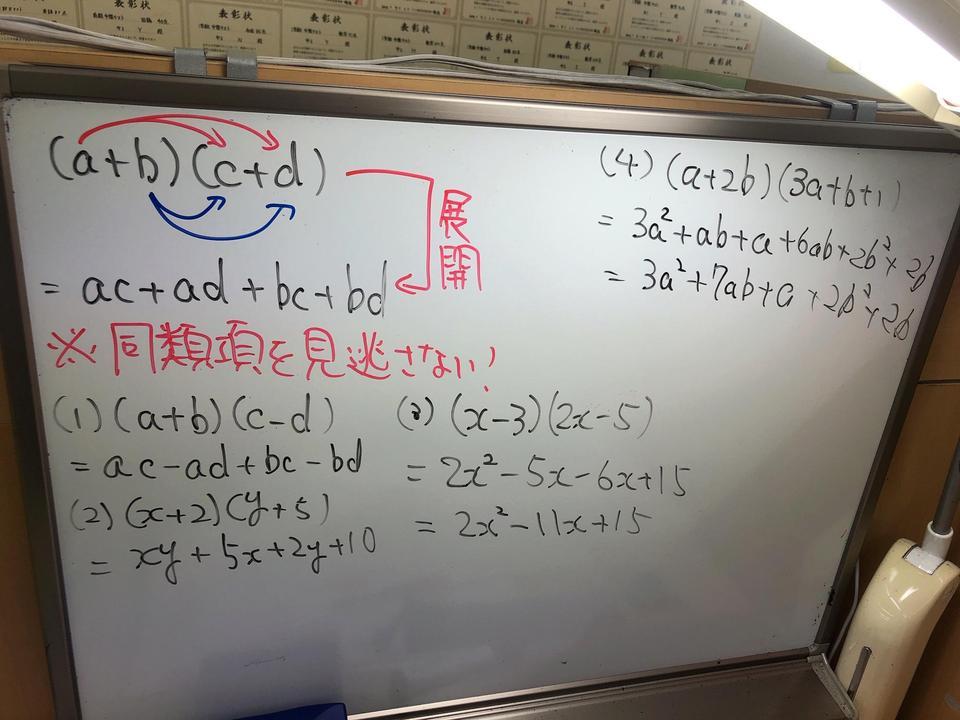 表彰状
表彰状
表彰状
表彰状
表彰状
(a+b)(c+d)
展開
= ac+ad+bc+bd
※同類項を見逃さない!
(1) (a+b)(c-d)
= ac-ad+bc-bd
(2) (x+2)(y+5)
= xy+5x+2y+10
(3) (x-3)(2x-5)
= 2x²-5x-6x+15
= 2x²-11x+15
(4) (a+2b)(3a+b+1)
= 3a²+ab+a+6ab+2b²+2b
= 3a²+7ab+a+2b²+2b